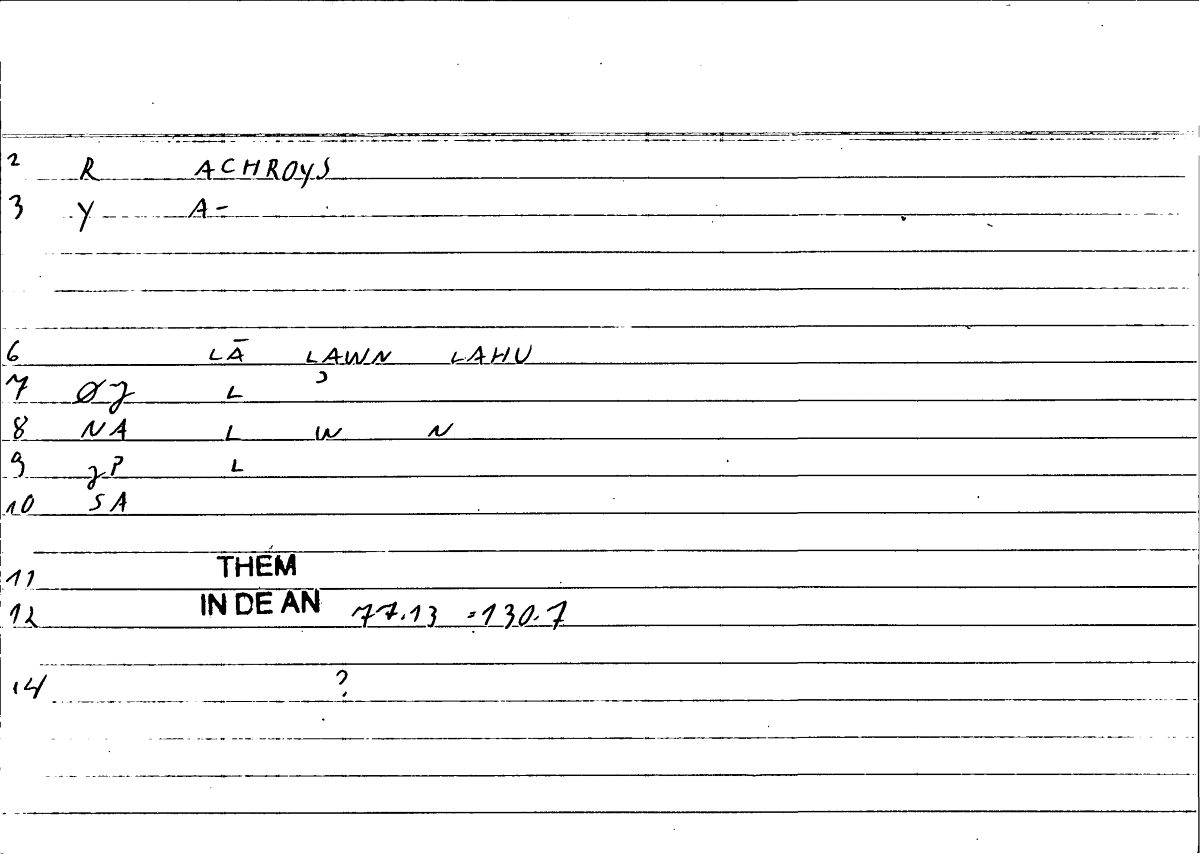 2 R ACHROYS
3 Y A-
6 LĀ LAWN LAHU
7 L ɔ
8 NA L W N
9 L
10 SA
11 THEM
12 IN DE AN 77.13 =130.7
14 ?